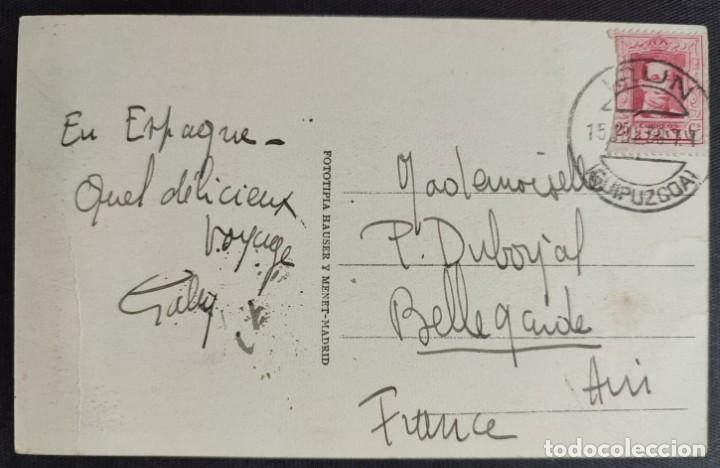 En Espagne -
Quel délicieux
Voyage
Gaby
FOTOTIPIA HAUSER Y MENET-MADRID
Mademoiselle
P. Duborjal
Bellegarde
Ain
France
IRUN
(GUIPUZCOA)
todocoleccion
todocoleccion.net